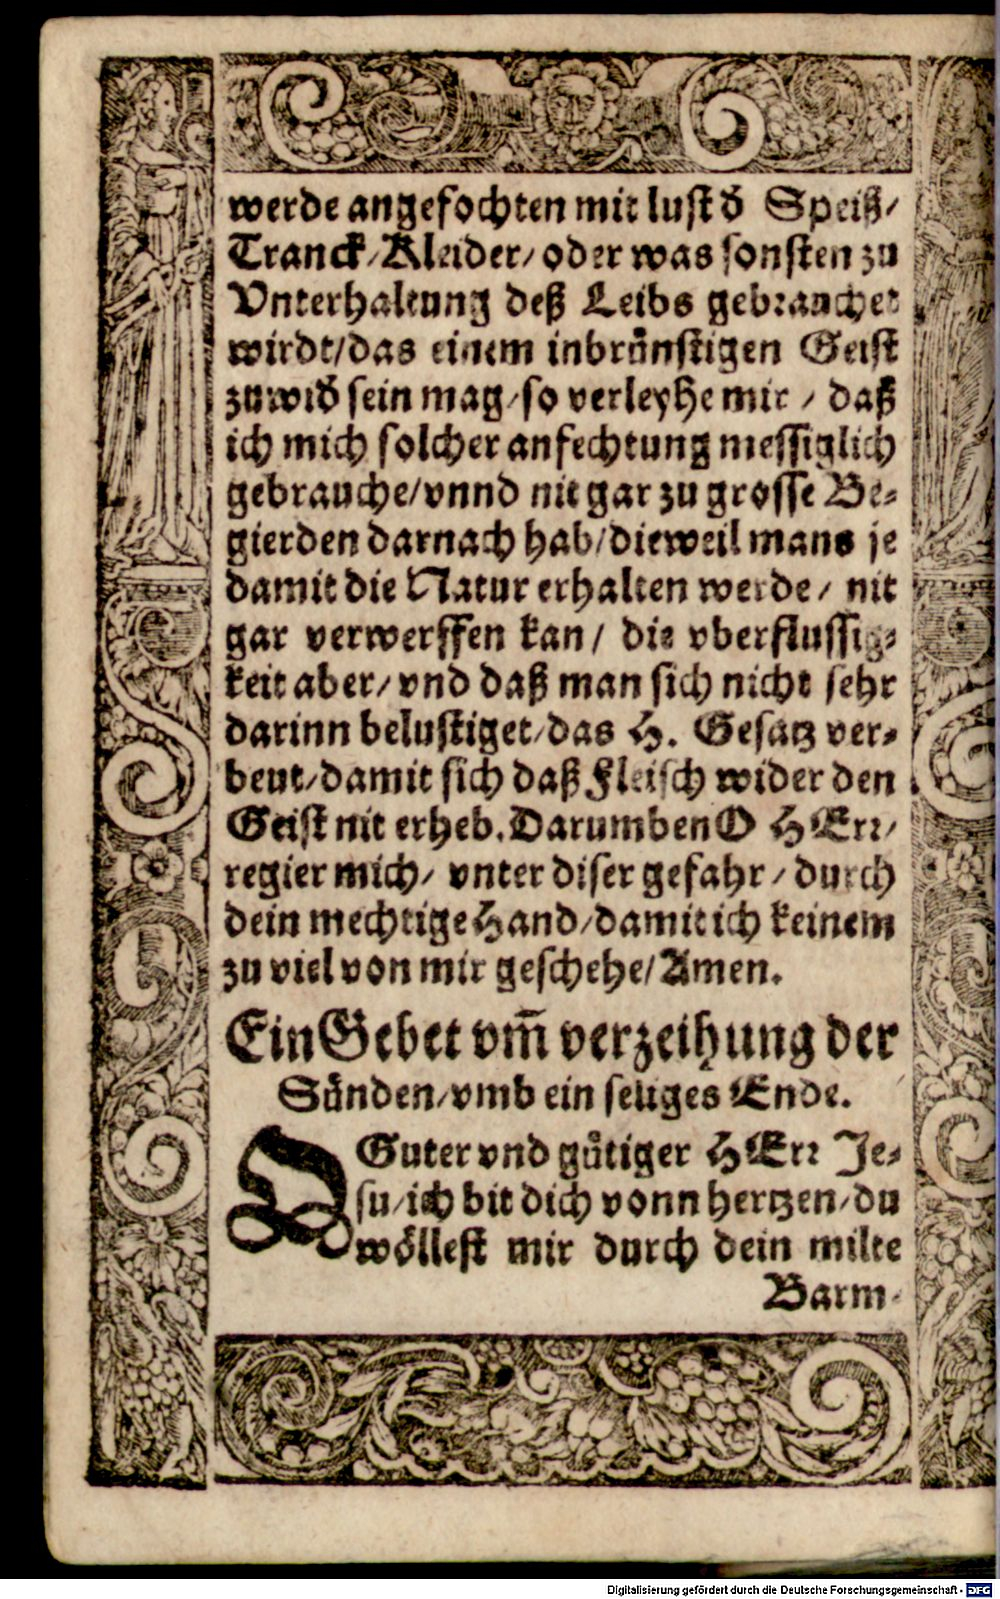 werde angefochten mit lust đ Speiß/
Tranck/Kleider/oder was sonsten zu
Vnterhaltung deß Leibs gebrauchet
wirdt/das einem inbrünstigen Geist
zuwiđ sein mag/so verleyhe mir / daß
ich mich solcher anfechtung messiglich
gebrauche/vnnd nit gar zu grosse Be-
gierden darnach hab/dieweil mans je
damit die Natur erhalten werde/ nit
gar verwerffen kan/ die vberflussig-
keit aber/vnd daß man sich nicht sehr
darinn belustiget/das H. Gesatz ver-
beut/damit sich daß Fleisch wider den
Geist nit erheb. Darumben O HErr/
regier mich/ vnter diser gefahr/durch
dein mechtige Hand/damit ich keinem
zu viel von mir geschehe/Amen.
Ein Gebet vm̄ verzeihung der
Sünden/vmb ein seliges Ende.
O Guter vnd gütiger HErr Je-
su/ich bit dich vonn hertzen/du
wöllest mir durch dein milte
Barm-
Digitalisierung gefördert durch die Deutsche Forschungsgemeinschaft - DFG